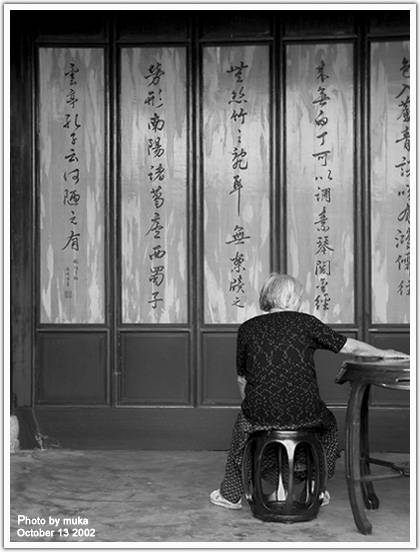 色入簾青談笑有鴻儒往
來無白丁可以調素琴閱金經
無絲竹之亂耳無案牘之
勞形南陽諸葛廬西蜀子
雲亭孔子云何陋之有
Photo by muka
October 13 2002